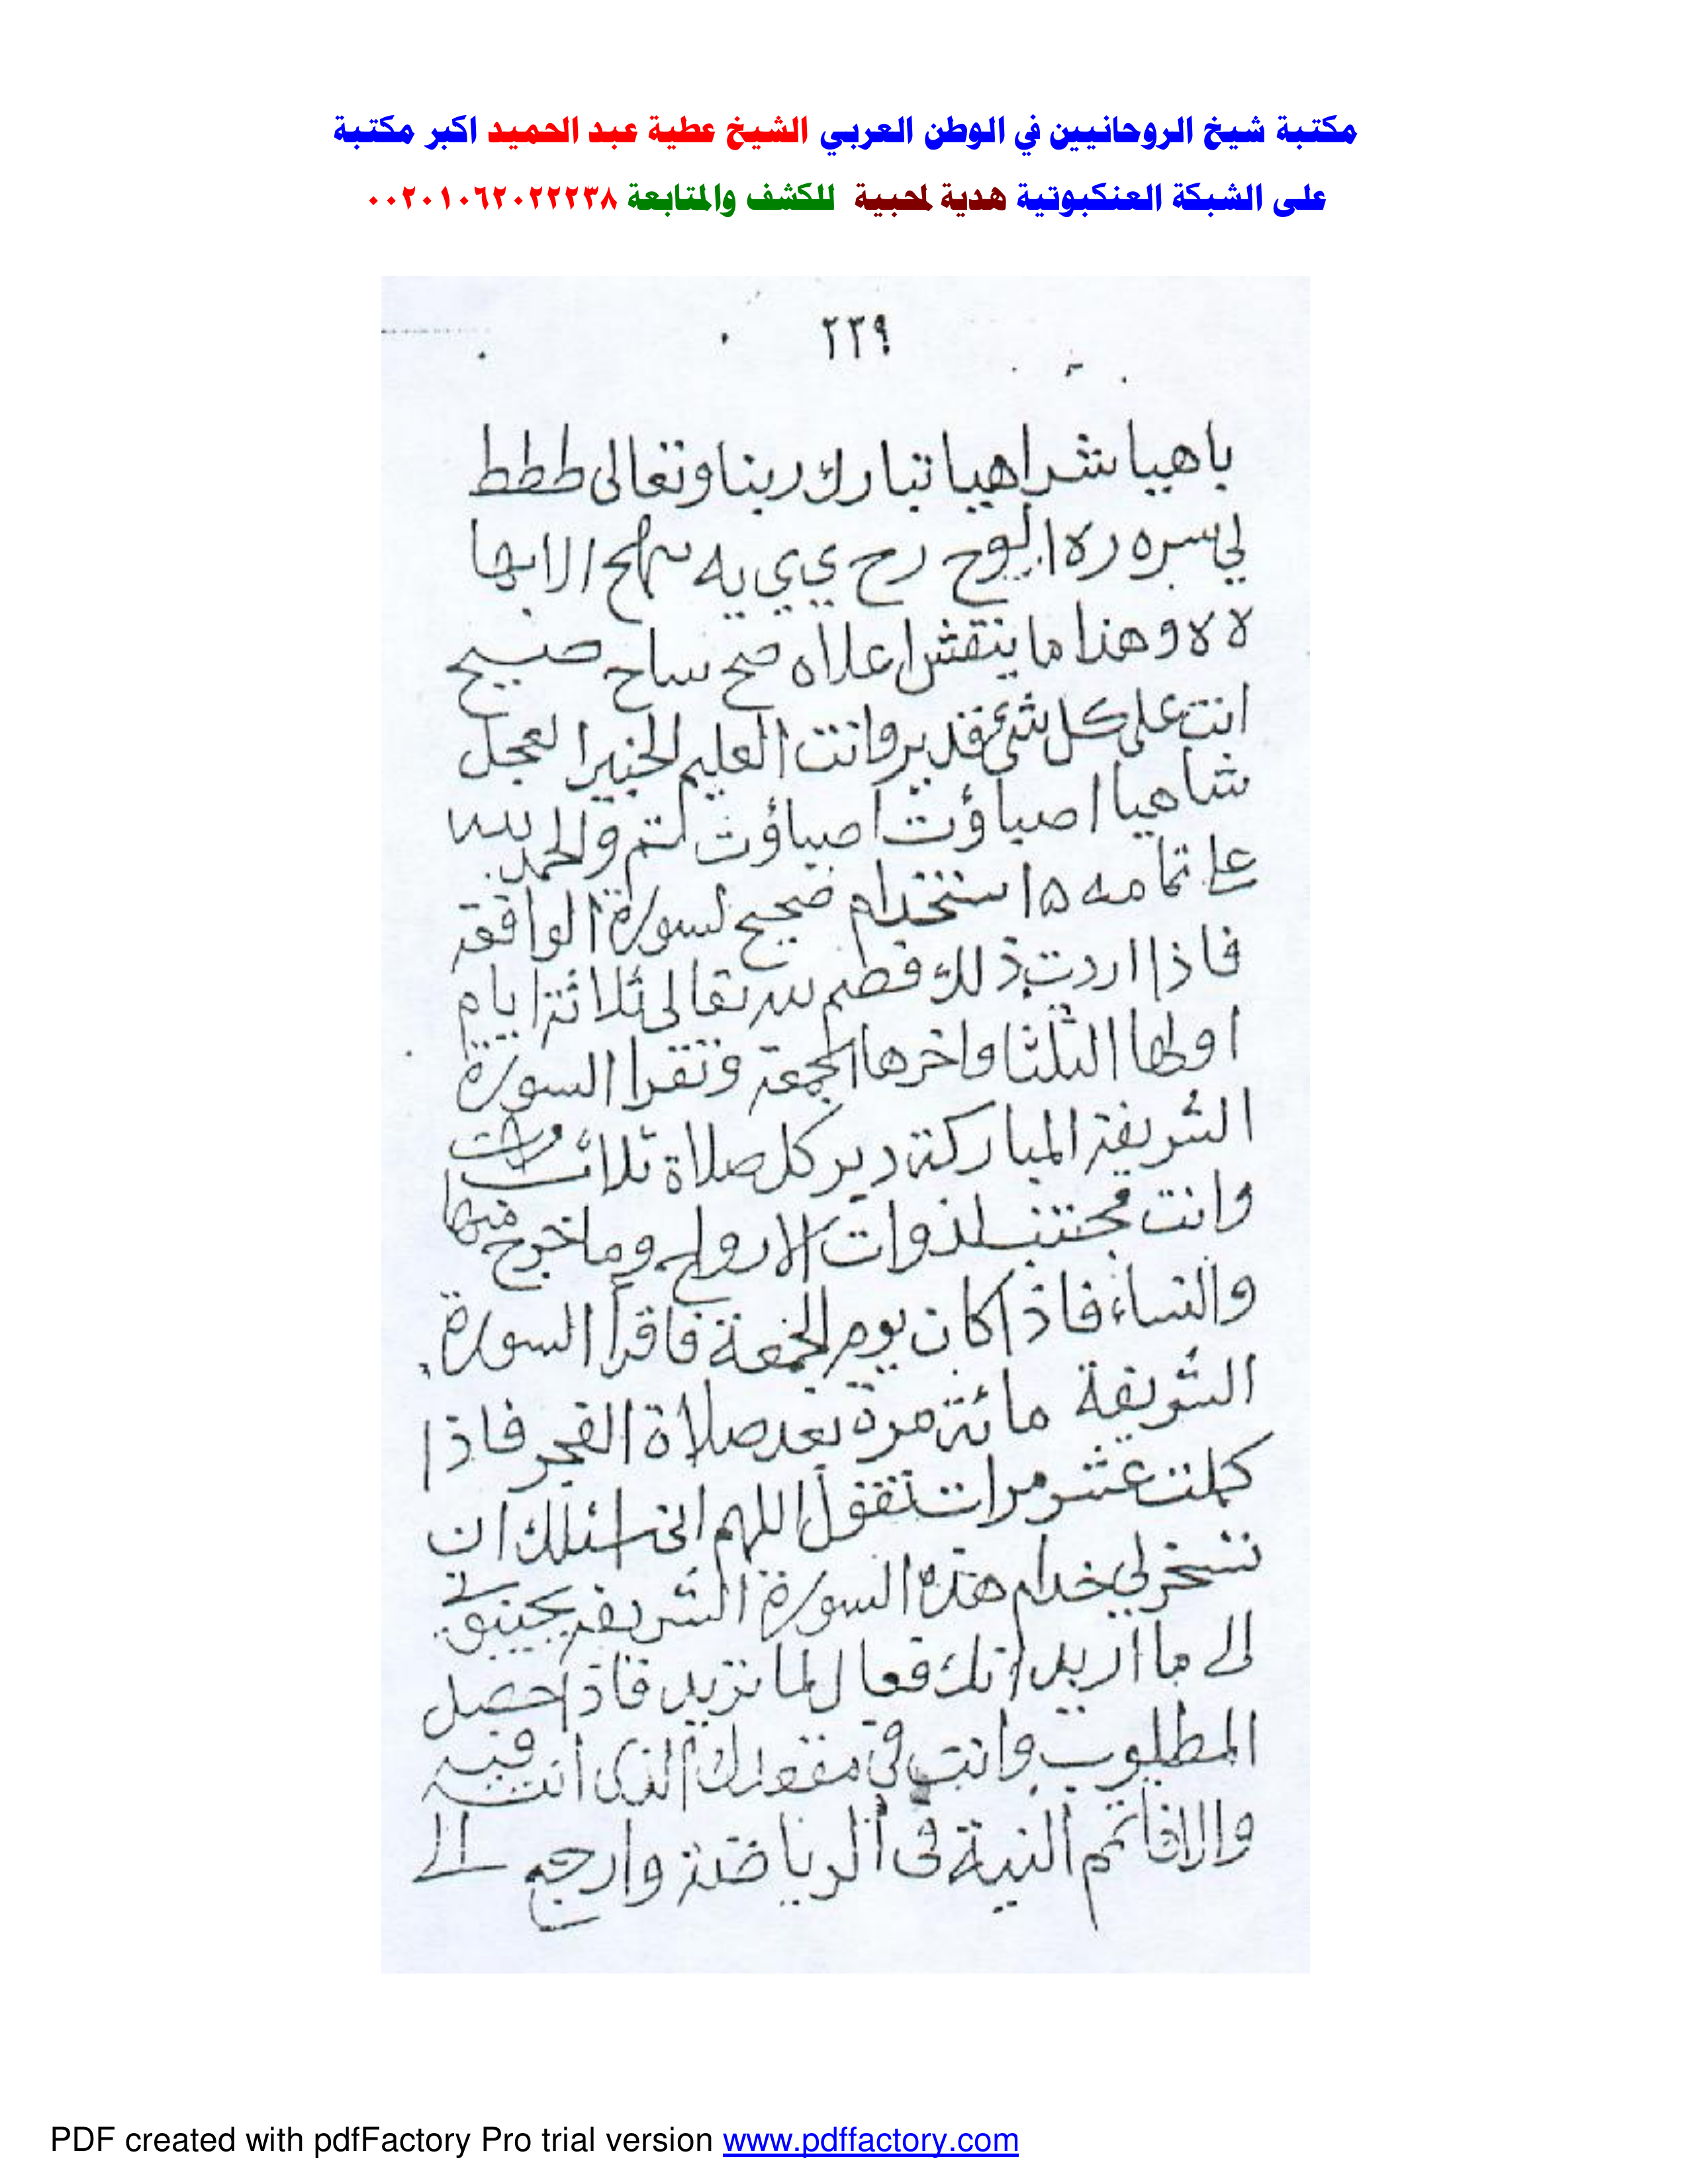 مكتبة شيخ الروحانيين في الوطن العربي الشيخ عطية عبد الحميد اكبر مكتبة
على الشبكة العنكبوتية هدية لمحبية للكشف والمتابعة ٠٠٢٠١٠٦٢٠٢٢٢٣٨
٢٣٩
باهيا شراهيا تبارك ربنا وتعالى ططط
لي سره ره ا رح ي ي يه الابها
لا لا وهذا ما ينقش اعلاه صح ساح صبيح
انت على كل شئ قدير وانت العليم الخبير العجل
شاهيا اصباؤت اصباؤت تم والحمد لله
على تمامه ه استخدام صحيح لسورة الواقعة
فاذا اردت ذلك فصم لله تعالى ثلاثة ايام
اولها الثلثا واخرها الجمعة وتقرا السورة
الشريفة المباركة دبر كل صلاة ثلاث مرات
وانت مجتنب لذوات الارواح وما خرج منها
والنساء فاذا كان يوم الجمعة فاقرا السورة
الشريفة مائة مرة بعد صلاة الفجر فاذا
كملت عشر مرات تقول اللهم اني اسئلك ان
تسخر لي خدام هذه السورة الشريفة يجيبوني
الى ما اريد انك فعال لما تريد فاذا حصل
المطلوب وانت في مقعدك الذى انت فيه
والا فاتمم النية فى الرياضة وارجع الى
PDF created with pdfFactory Pro trial version www.pdffactory.com